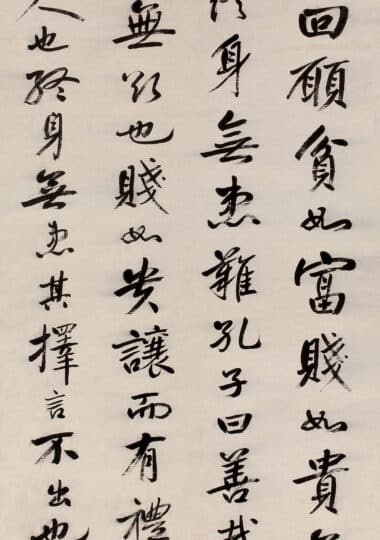 回願貧如富賤如貴
身無患難孔子曰善哉
無欲也賤如貴讓而有禮
人也終身無患其擇言不出也